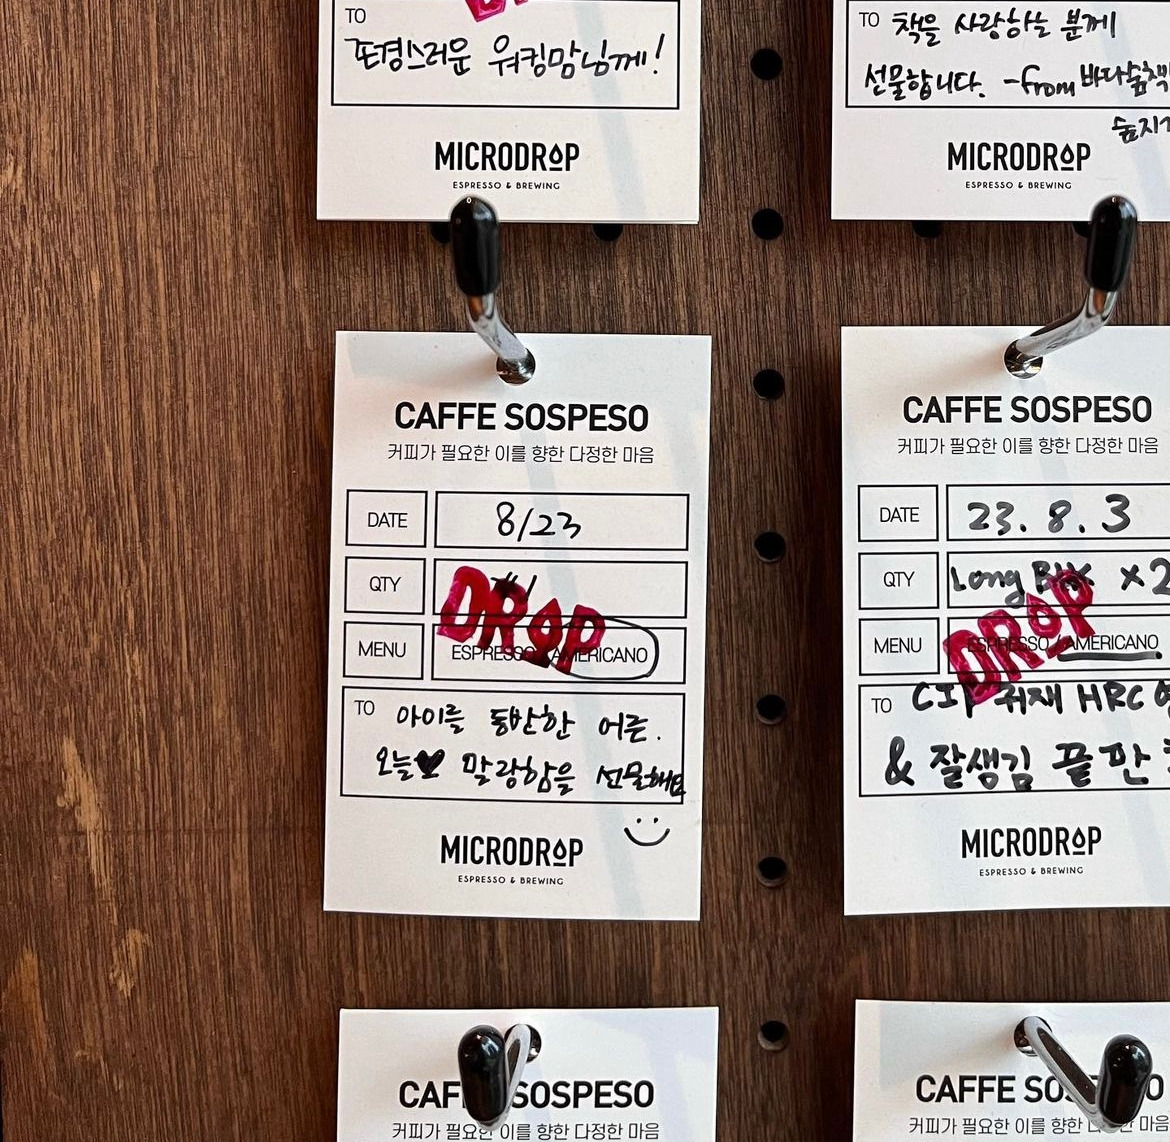 TO
존경스러운 워킹맘님께!
MICRODROP
ESPRESSO & BREWING
TO 책을 사랑하는 분께
선물합니다. -from 바다숲책
숲지기
MICRODROP
ESPRESSO & BREWING
CAFFE SOSPESO
커피가 필요한 이를 향한 다정한 마음
DATE 8/23
QTY #1
DROP
MENU ESPRESSO / AMERICANO
TO 아이를 동반한 어른.
오늘♥ 말랑함을 선물해요
MICRODROP
ESPRESSO & BREWING
CAFFE SOSPESO
커피가 필요한 이를 향한 다정한 마음
DATE 23. 8. 3
QTY Long Blk x2
DROP
MENU ESPRESSO / AMERICANO
TO 취재 HRC
& 잘생김 끝판
MICRODROP
ESPRESSO & BREWING
CAFFE SOSPESO
커피가 필요한 이를 향한 다정한 마음
CAFFE SOSPESO
커피가 필요한 이를 향한 다정한 마음